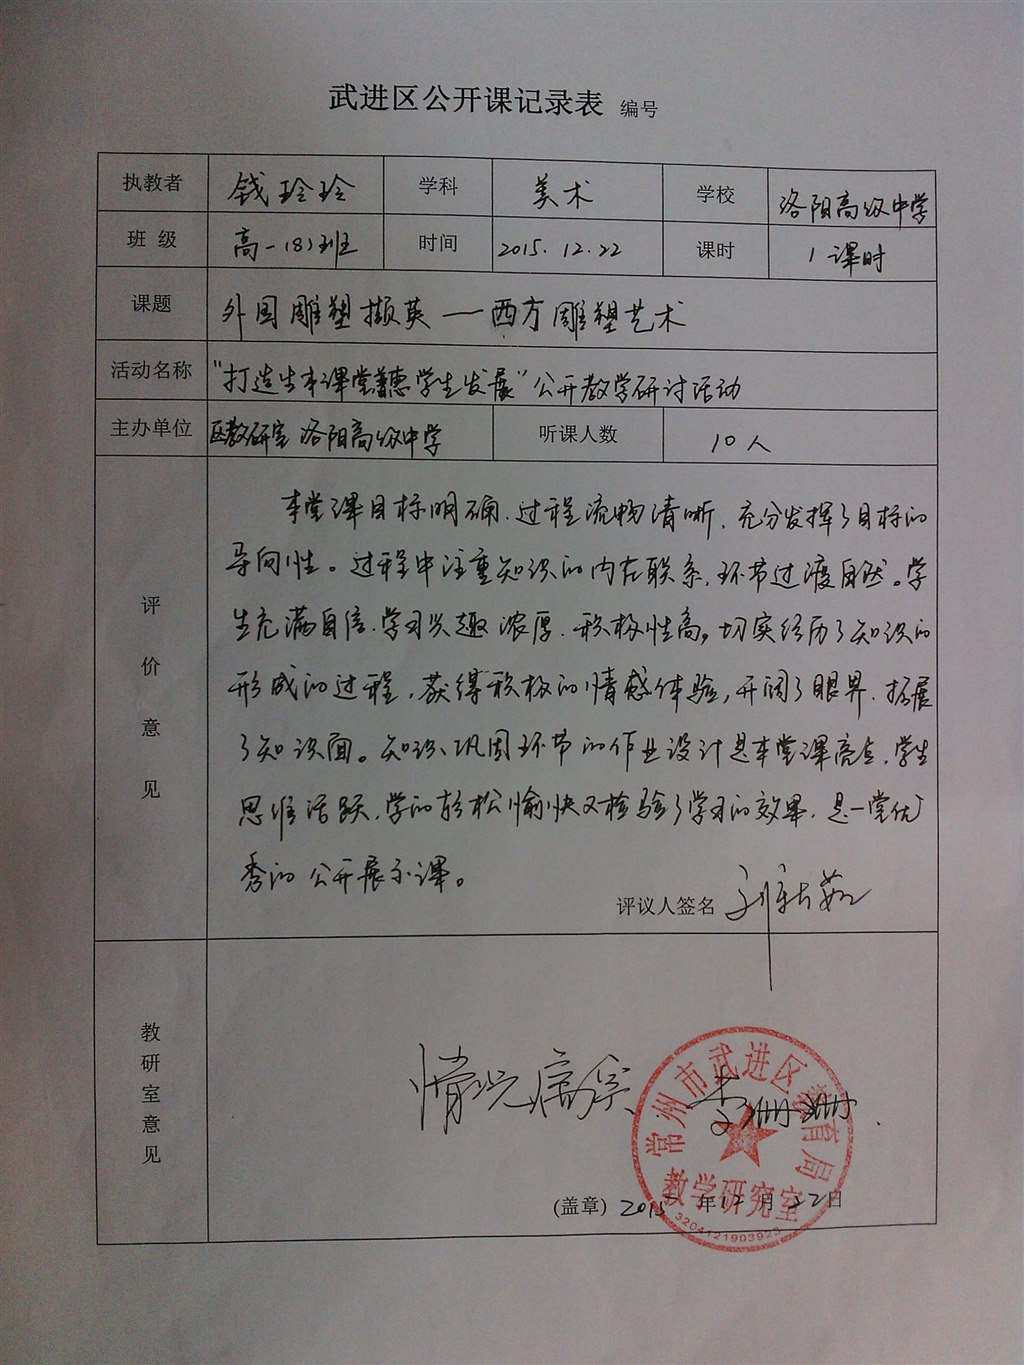 武进区公开课记录表 编号
执教者 钱玲玲 学科 美术 学校 洛阳高级中学
班 级 高一(8)班 时间 2015.12.22 课时 1课时
课题 外国雕塑撷英——西方雕塑艺术
活动名称 “打造生本课堂 学生发展”公开教学研讨活动
主办单位 区教研室 洛阳高级中学 听课人数 10人
评价意见
本堂课目标明确、过程流畅清晰,充分发挥了目标的
导向性。过程中注重知识的内在联系,环节过渡自然。学
生充满自信、学习兴趣浓厚、积极性高,切实经历了知识的
形成的过程,获得积极的情感体验,开阔了眼界、拓展
了知识面。知识巩固环节的作业设计是本堂课亮点,学生
思维活跃,学的轻松愉快又检验了学习的效果,是一堂优
秀的公开展示课。
评议人签名
教研室意见
情况属实
常州市武进区教育局
教学研究室
(盖章) 2015年12月22日